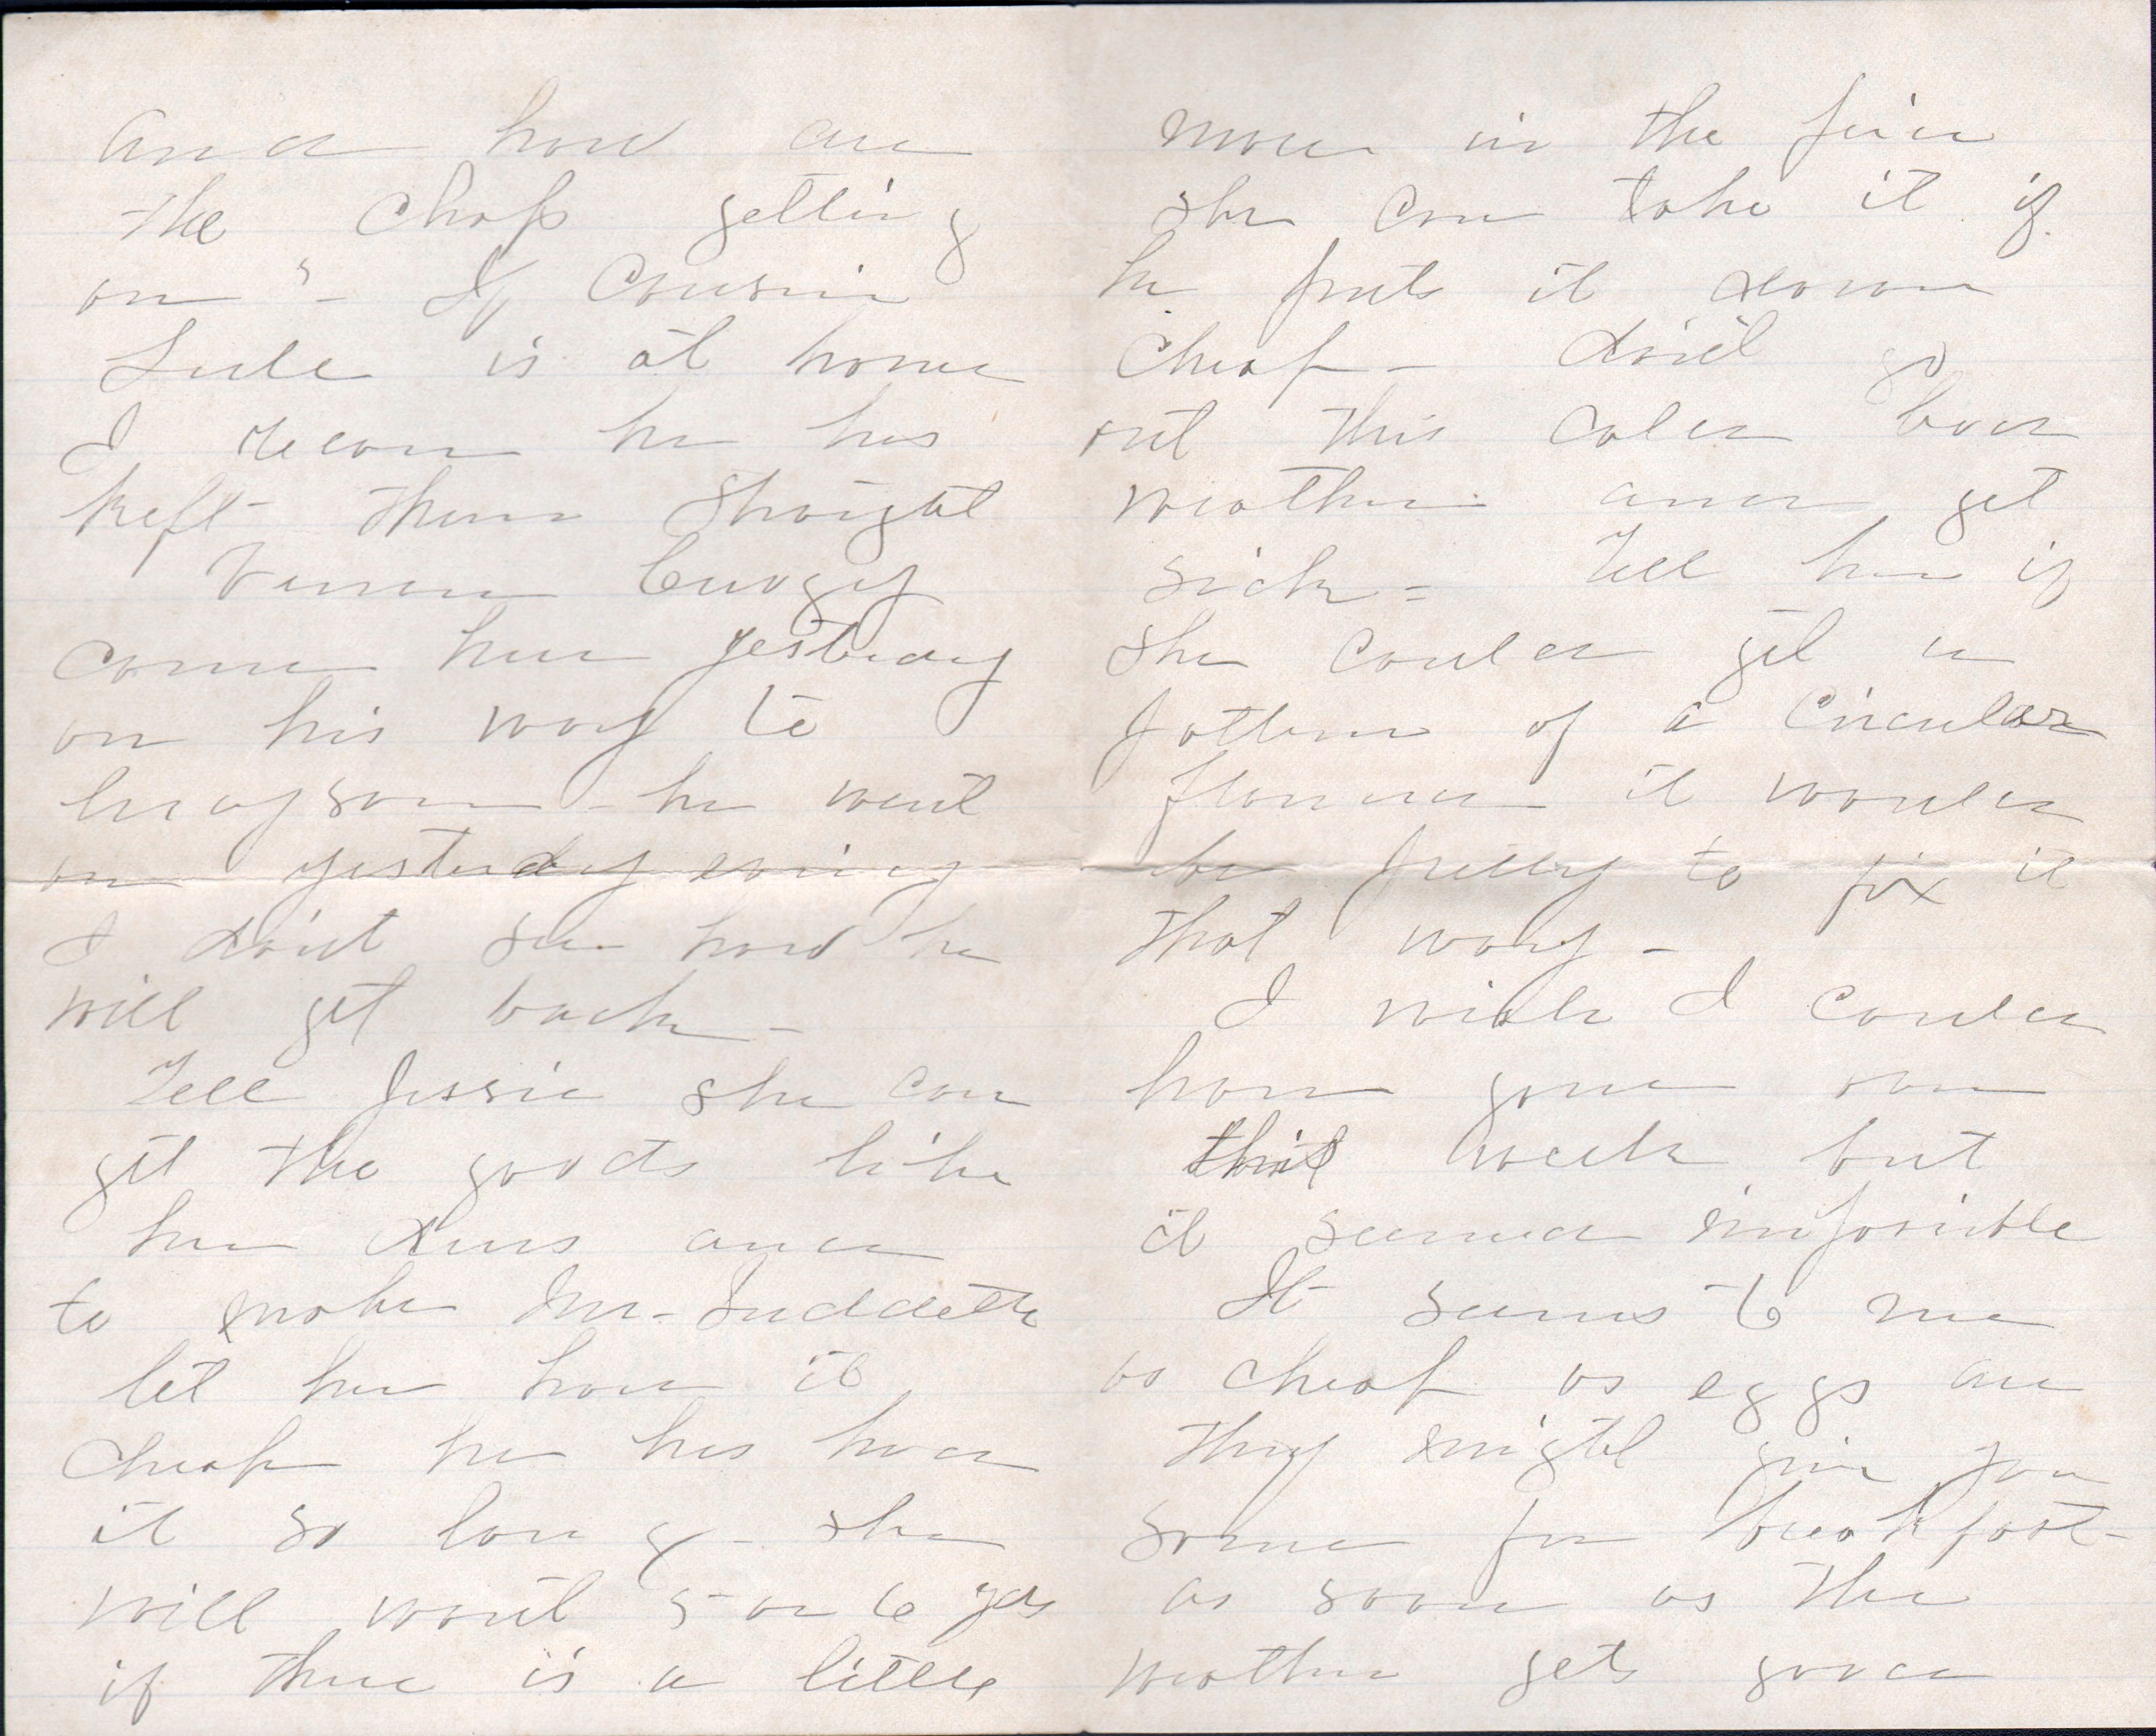 and how are
the Chaps getting
on"- If Cousin
Lule is at home
I recon he has
kept them straight
Vernon
come here yesterday
on his way to
Grayson - he went
on yesterday evning
I don't see how he
will get back -
Tell Jessie she can
get the goods like
her dress and
to make Mr. Suddeth
let her have it
cheap he has had
it so long - she
will want 5 or 6 yds
if there is a little
more in the piece
she can take it if
he puts it down
cheap - don't go
out this cold bad
weather and get
sick = Tell her if
she could get a
pattern of a circular
flounce it would
be pretty to fix it
that way -
I wish I could
have gone on
this week but
it seemed imposible
It seems to me
as cheap as eggs are
they might give you
some for breakfast -
as soon as the
weather gets good